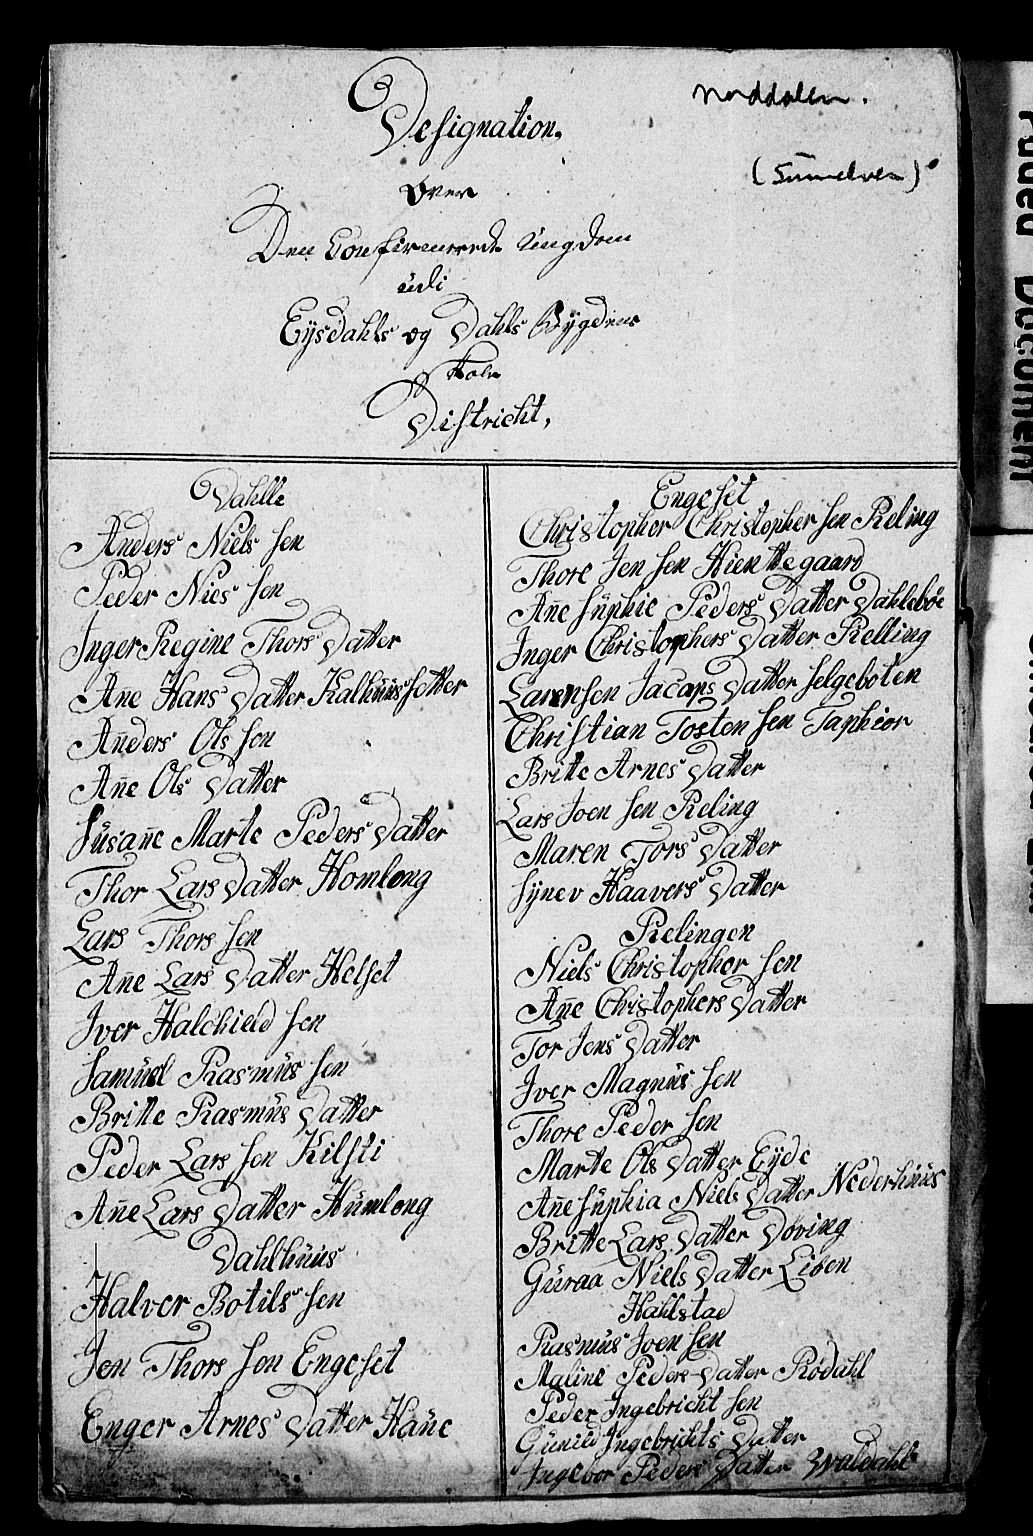 Designation,
Norddalen.
(Sunnelven)
Over
Den Confirmerede Ungdom
udi
Eysdahls og Dahls Bygdens
Skole
District,
Dahlle
Anders Niels sen
Peder Nies sen
Inger Regine Thors Datter
Ane Hans Datter Kalhuusfotter
Anders Ols sen
Añe Ols Datter
Susañe Marte Peders Datter
Thor Lars Datter Homlong
Lars Thors sen
Añe Lars Datter Helset
Iver Halckield sen
Samuel Rasmus sen
Britte Rasmus Datter
Peder Lars sen Kilsti
Añe Lars Datter Humlong
Dahlhuus
Halver Botils sen
Jen Thors sen Engeset
Enger Arnes Datter Haue
Engeset
Christopher Christopher sen Reling
Thore Jen sen Hienttegaard
Añe Suphie Peders Datter Dahlsböe
Inger Christophers Datter Relling
Larensen Jacaps Datter Selgeboten
Christian Tosten sen Taphior
Brite Arnes Datter
Lars Joen sen Reling
Maren Tors Datter
Synev Haavers Datter
Relingen
Niels Christopher sen
Añe Christophers Datter
Tor Jens Datter
Iver Magnus sen
Thore Peder sen
Marte Ols Datter Eyde
Añe Suphia Niels Datter Nederhuus
Britte Lars Datter Döving
Guraa Niels Datter Liben
Hallstad
Rasmus Joen sen
Maline Peders Datter Rødahl
Peder Ingebricht sen
Gunild Ingebrichts Datter
Ingebor Peders Datter Waldahl